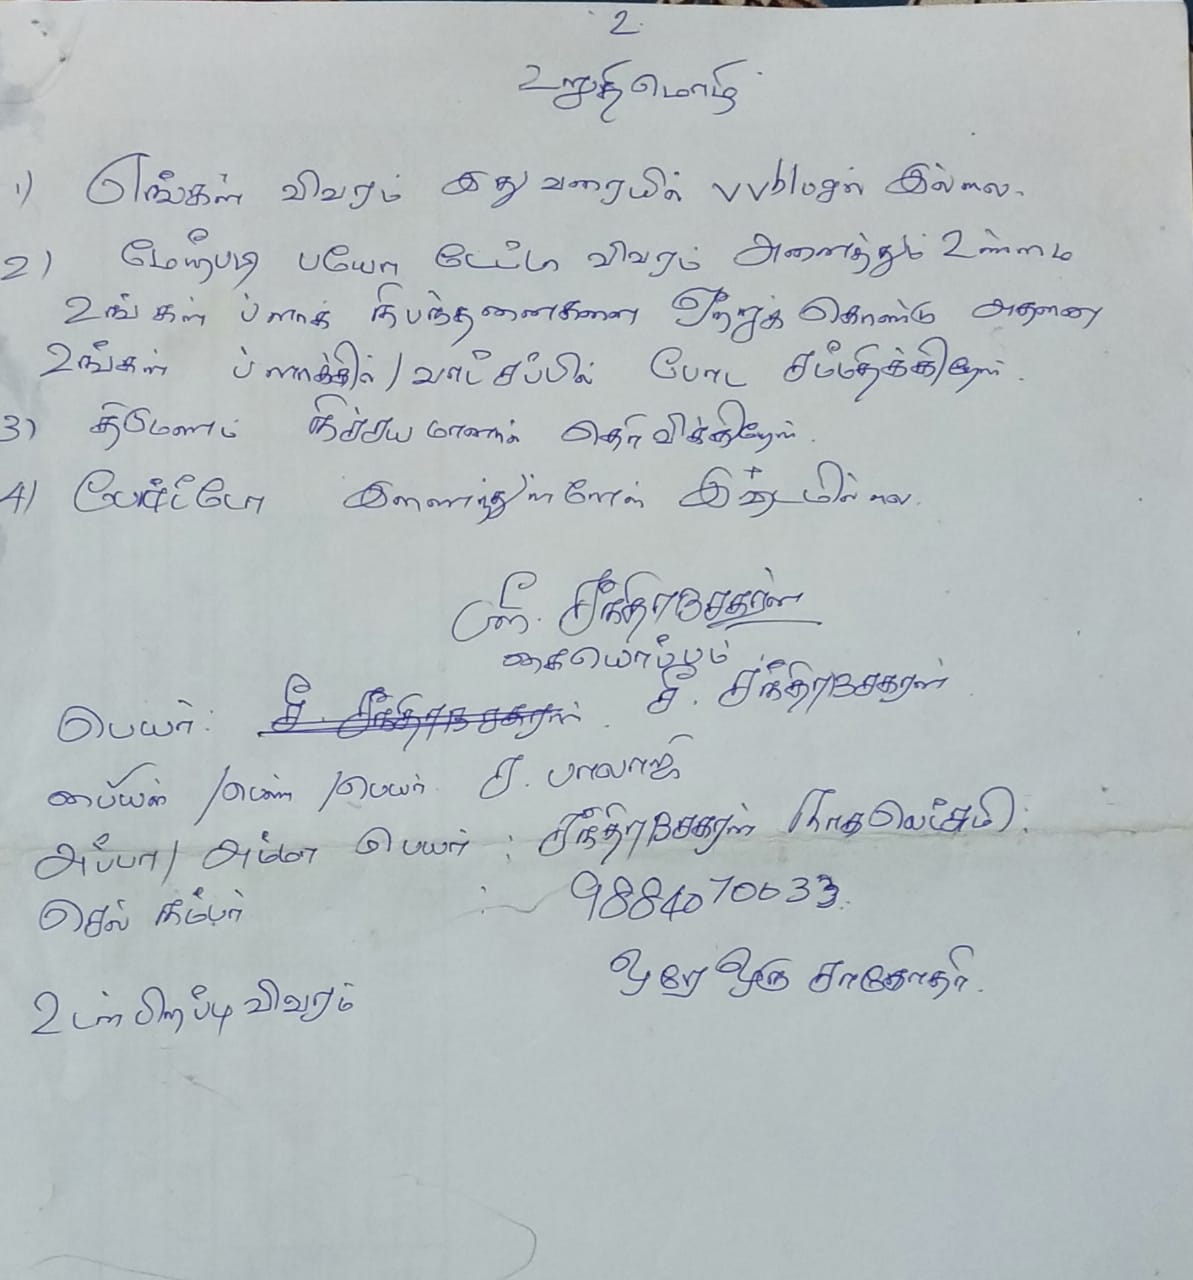 2.
உறுதிமொழி
1) எங்கள் விவரம் இது வரையில் vvblமதல் இல்லை.
2) மேற்படி பயோ டேட்டா விவரம் அனைத்தும் உண்மை
உங்கள் ப்ளாக் நிபந்தனைகளை ஏற்றுக் கொண்டு அதனை
உங்கள் ப்ளாக்கில் / வாட்சப்பில் போட சம்மதிக்கிறேன்.
3) திருமணம் நிச்சயமானால் தெரிவிக்கிறேன்.
4) இணைந்துள்ளேன் இஷ்டமில்லை.
சந்திரசேகரன்
கையொப்பம்
பெயர்: சீ. சந்திரசேகரன்
பையன் / பெண் / பெயர் ச. பாலாஜி
அப்பா / அம்மா பெயர் : சந்திரசேகரன்
செல் நம்பர் : 9884070033.
ஒரே ஒரு சகோதரி.
உடன்பிறப்பு விவரம்